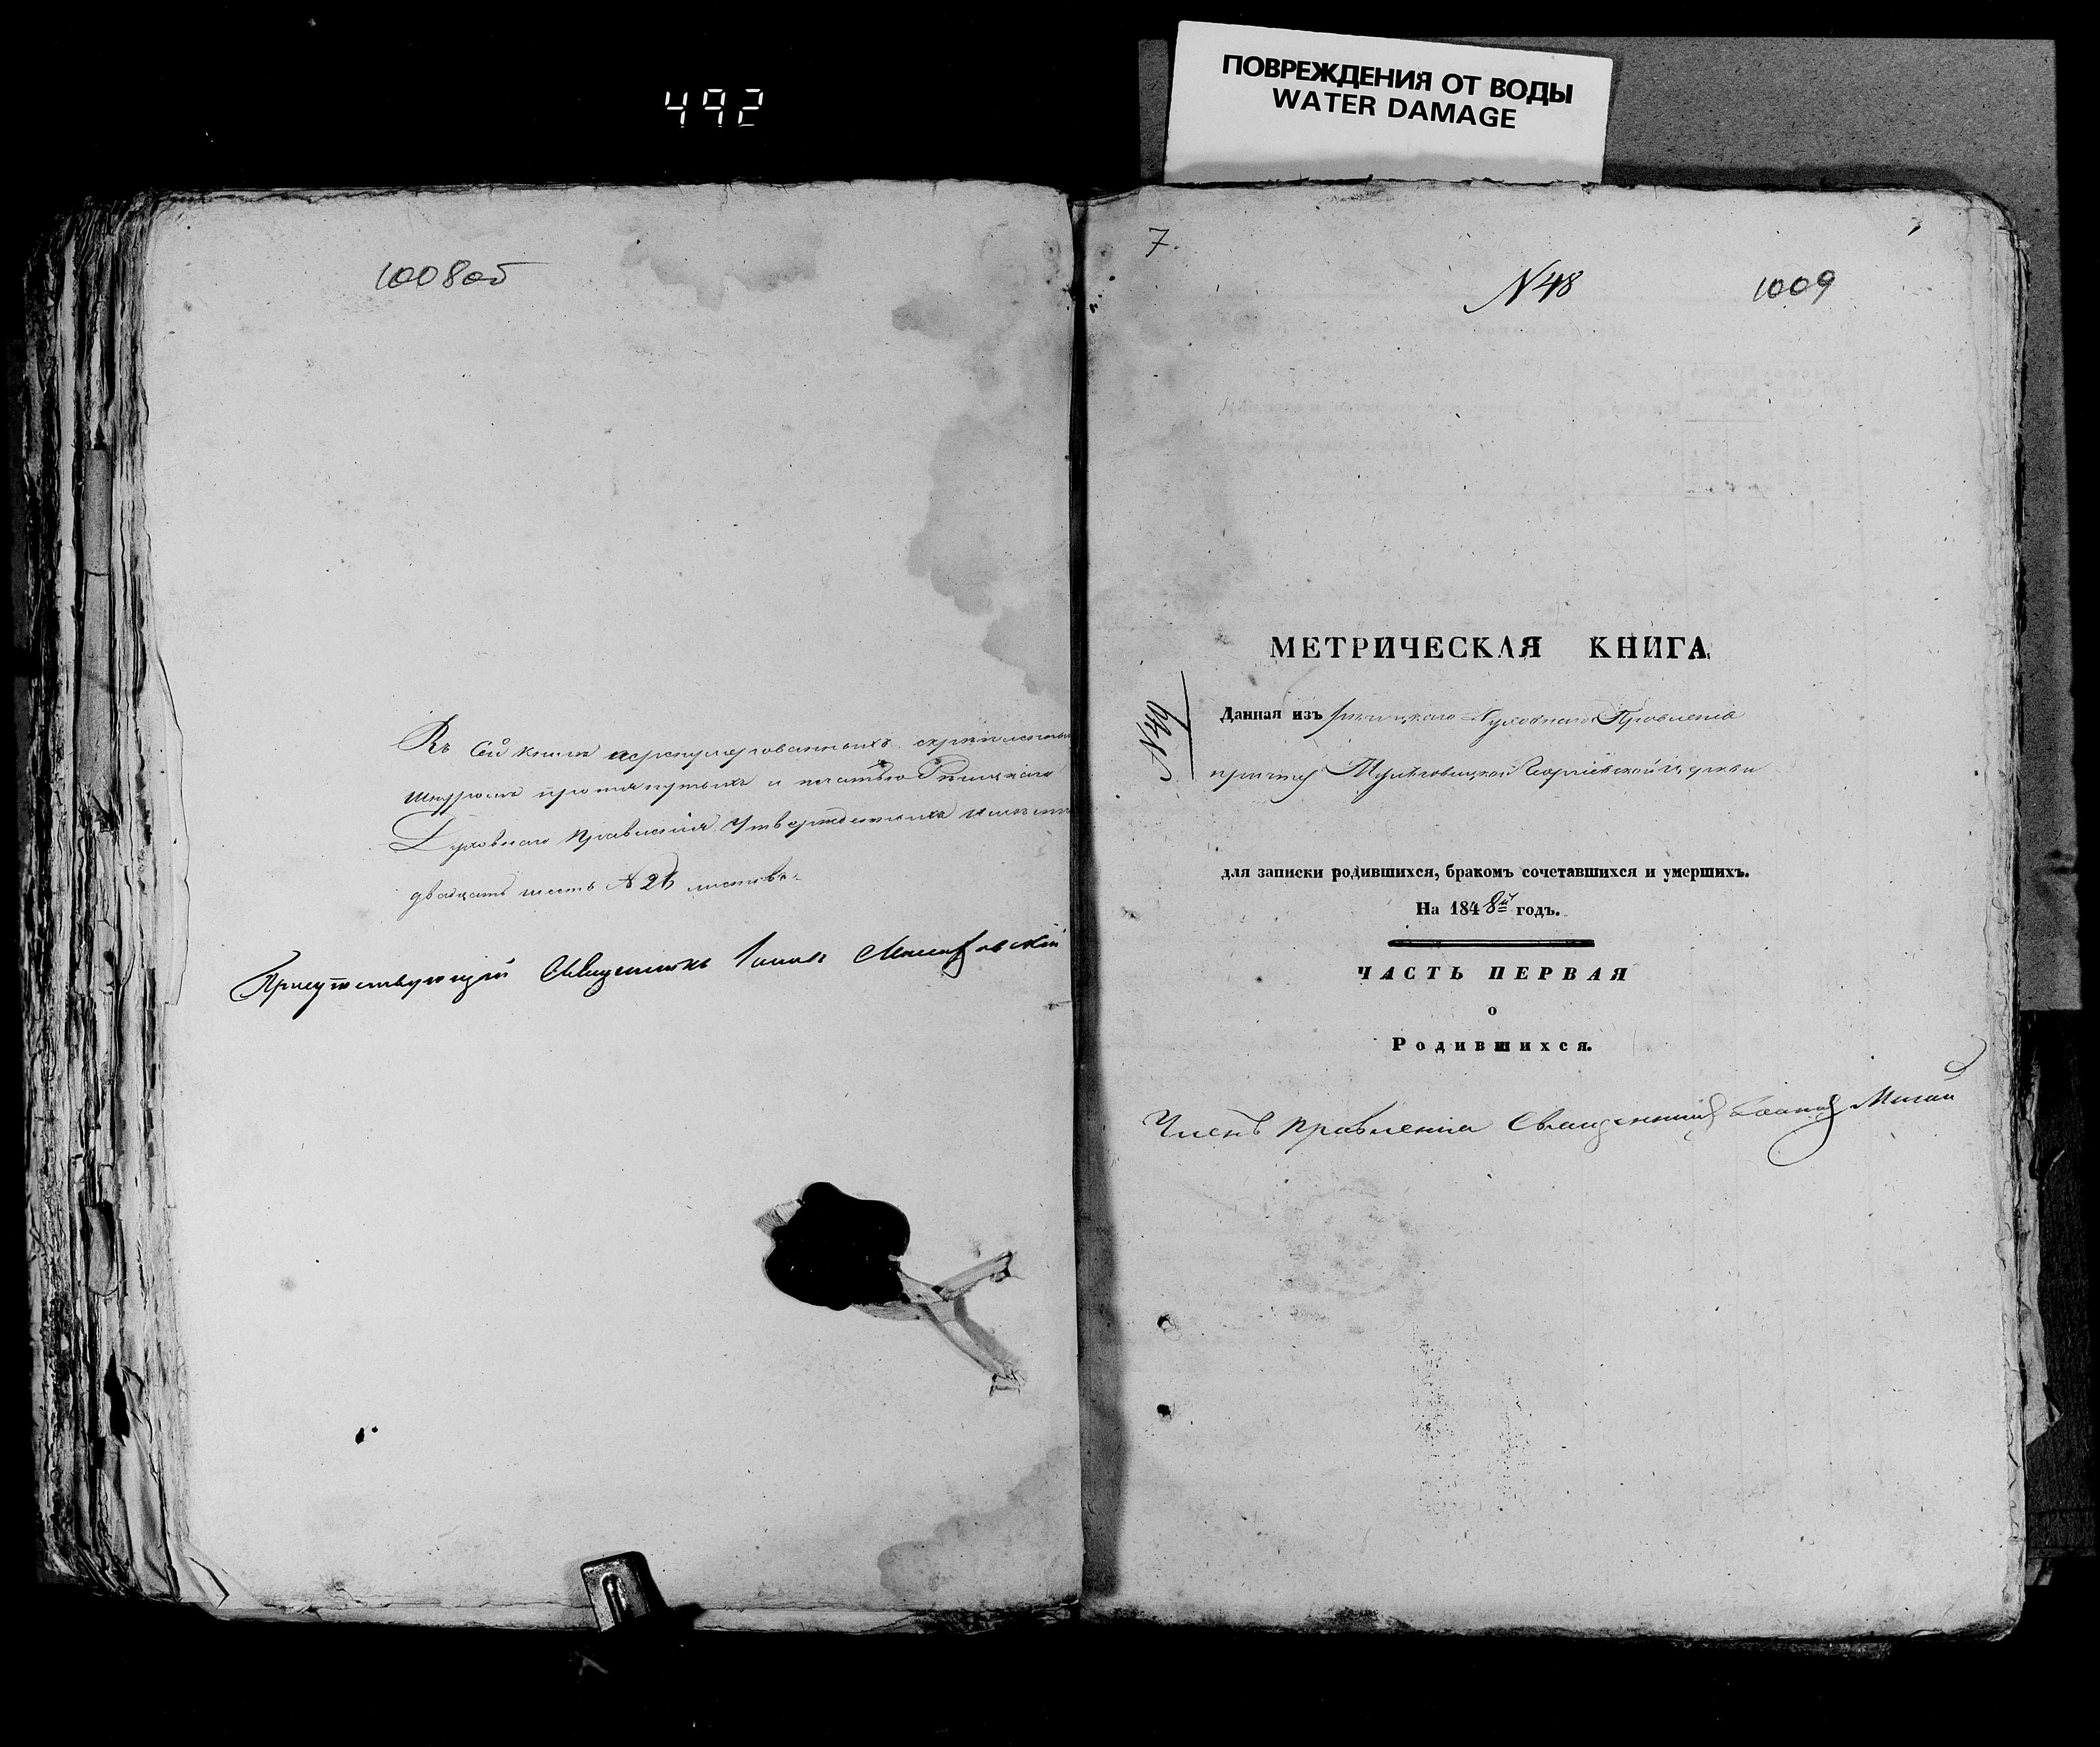 492
ПОВРЕЖДЕНИЯ ОТ ВОДЫ
WATER DAMAGE
1008об
Въ сей книге перенумерованныхъ скрепленныхъ
шнуромъ протянутыхъ и печатью
Духовного Правления утвержденныхъ
двадцать шесть № 26 листовъ.
Присутствующий Священникъ
7.
N 48
1009
N 49
МЕТРИЧЕСКАЯ КНИГА
Данная изъ Духовнаго Правления
причту Георгиевской церкви
для записки родившихся, бракомъ сочетавшихся и умершихъ.
На 1848й годъ.
ЧАСТЬ ПЕРВАЯ
о
Родившихся.
Членъ Правления Священникъ